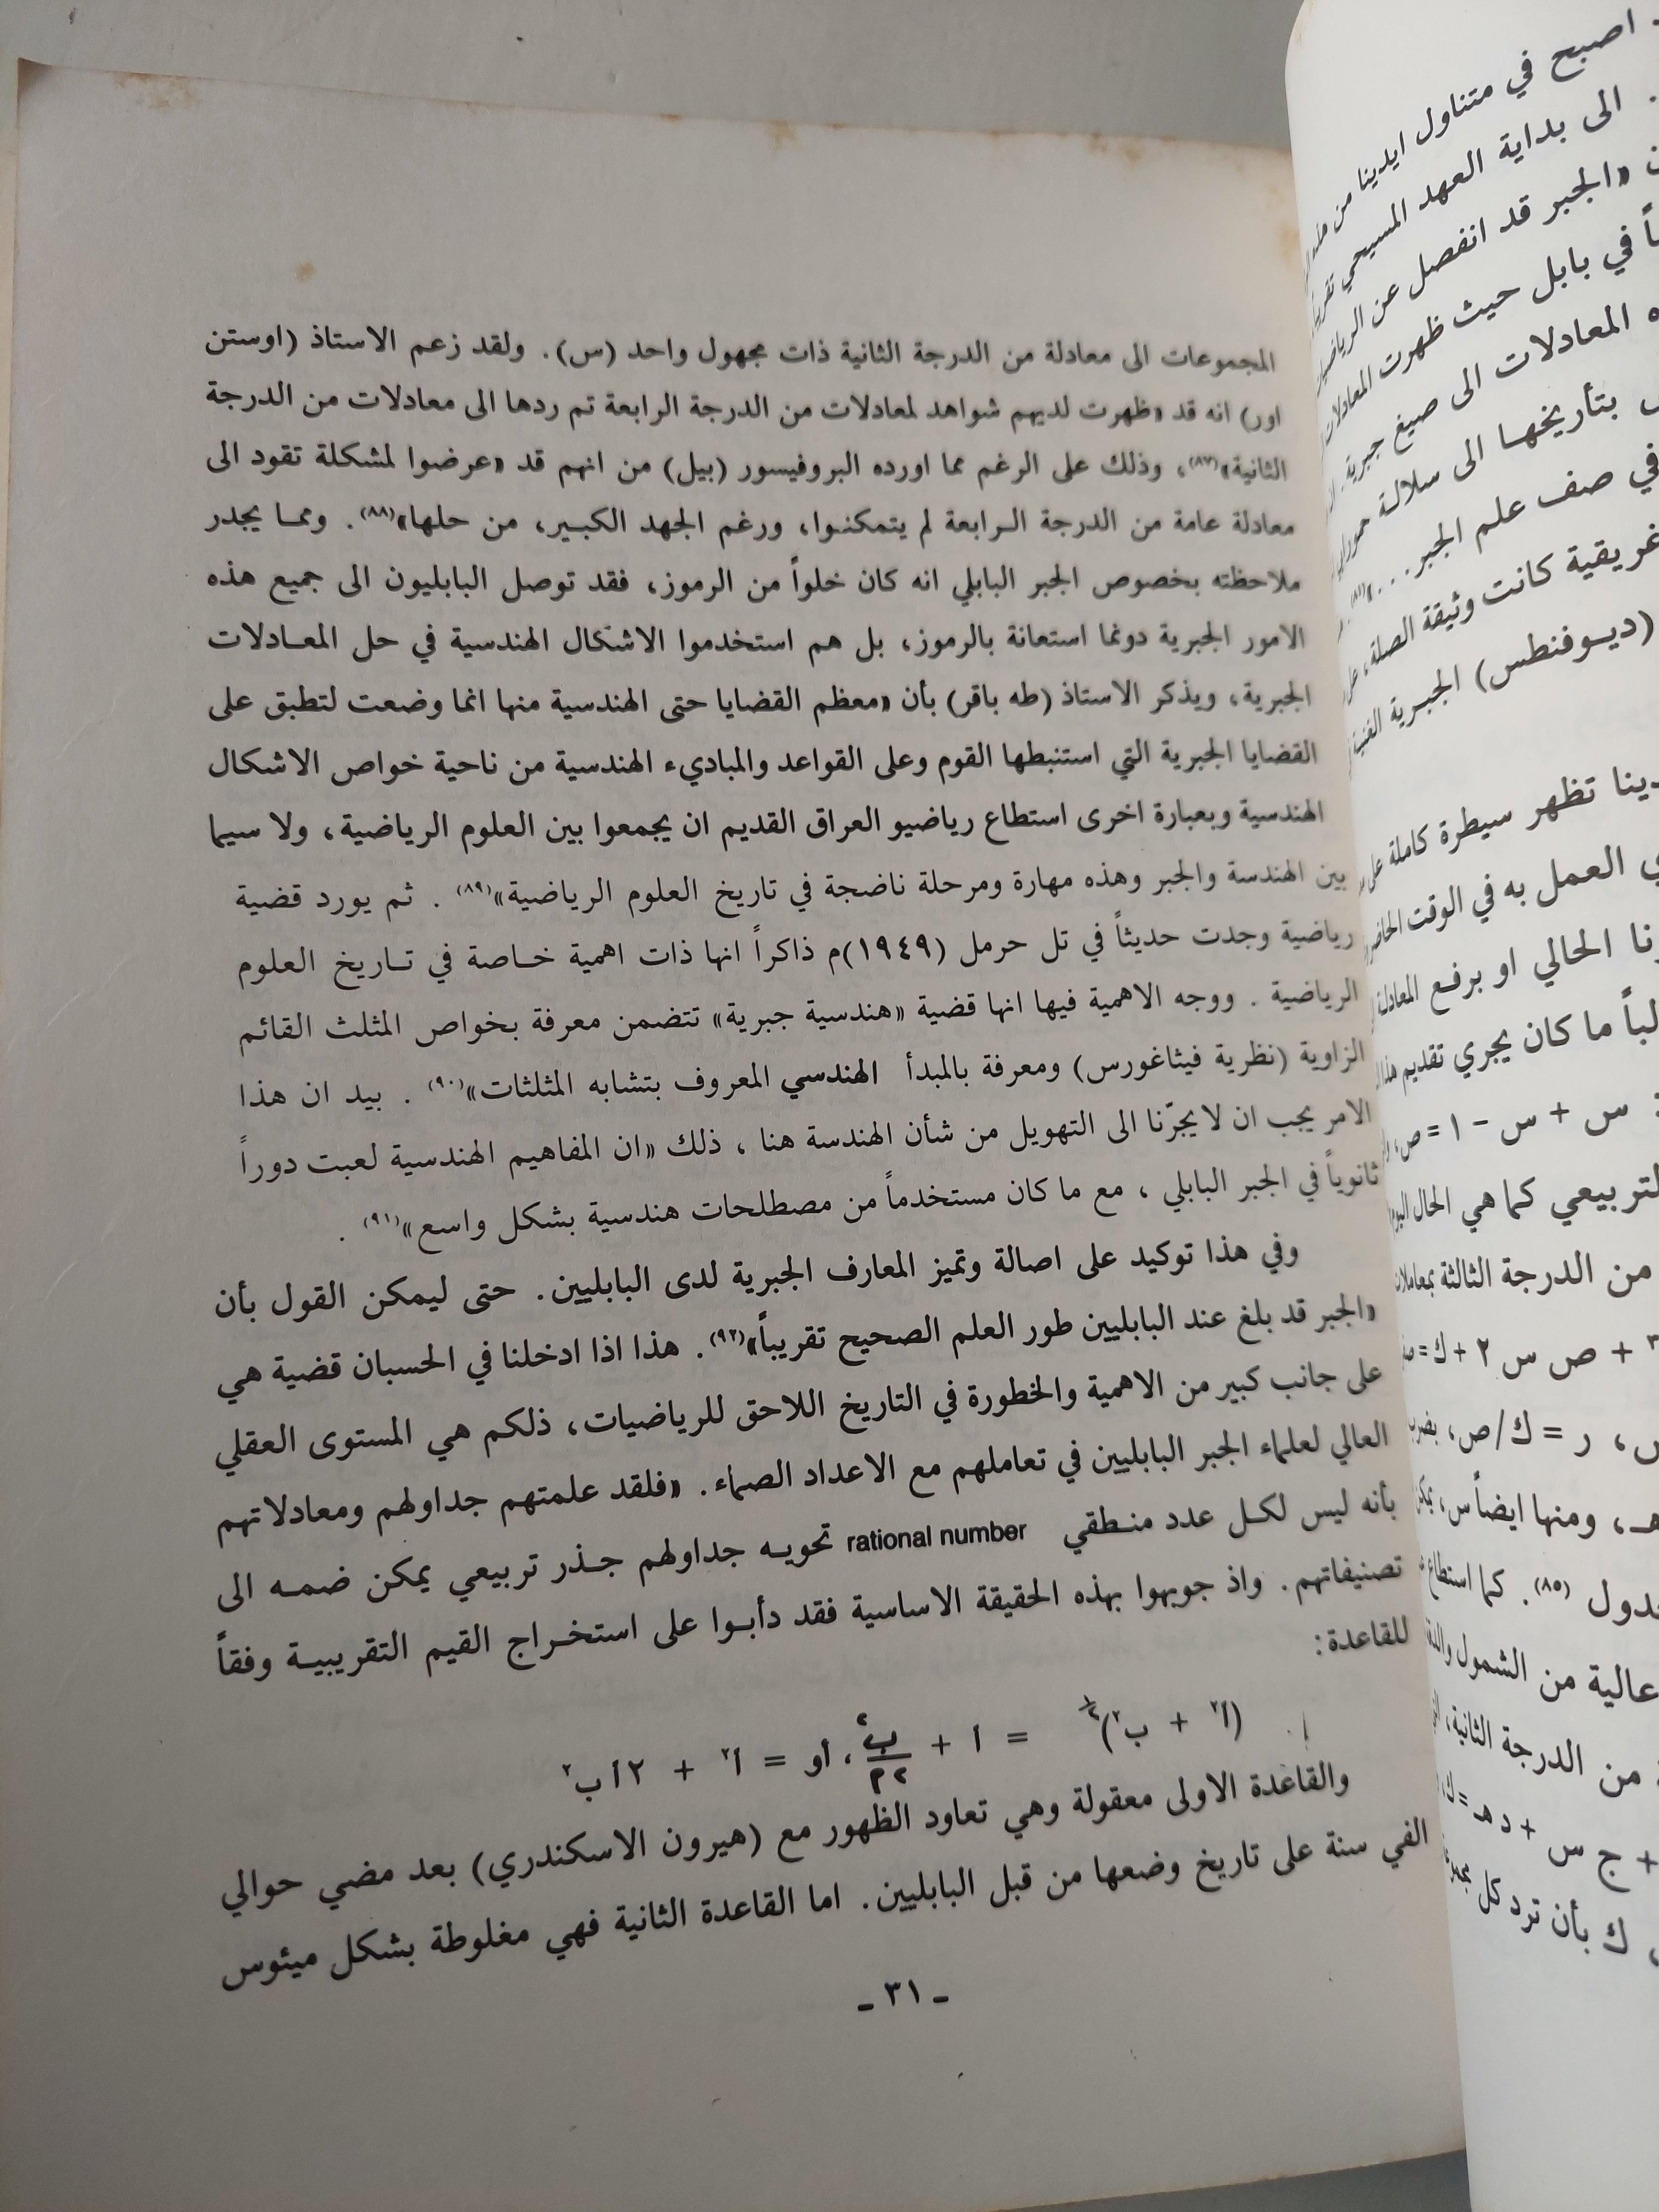 المجموعات الى معادلة من الدرجة الثانية ذات مجهول واحد (س). ولقد زعم الاستاذ (اوستن
اور) انه قد «ظهرت لديهم شواهد لمعادلات من الدرجة الرابعة تم ردها الى معادلات من الدرجة
الثانية»(٨٧)، وذلك على الرغم مما اورده البروفيسور (بيل) من انهم قد «عرضوا لمشكلة تقود الى
معادلة عامة من الدرجة الرابعة لم يتمكنوا، ورغم الجهد الكبير، من حلها»(٨٨). ومما يجدر
ملاحظته بخصوص الجبر البابلي انه كان خلواً من الرموز، فقد توصل البابليون الى جميع هذه
الامور الجبرية دونما استعانة بالرموز، بل هم استخدموا الاشكال الهندسية في حل المعادلات
الجبرية، ويذكر الاستاذ (طه باقر) بأن «معظم القضايا حتى الهندسية منها انما وضعت لتطبق على
القضايا الجبرية التي استنبطها القوم وعلى القواعد والمباديء الهندسية من ناحية خواص الاشكال
الهندسية وبعبارة اخرى استطاع رياضيو العراق القديم ان يجمعوا بين العلوم الرياضية، ولا سيما
بين الهندسة والجبر وهذه مهارة ومرحلة ناضجة في تاريخ العلوم الرياضية»(٨٩) . ثم يورد قضية
رياضية وجدت حديثاً في تل حرمل (١٩٤٩)م ذاكراً انها ذات اهمية خاصة في تاريخ العلوم
الرياضية . ووجه الاهمية فيها انها قضية «هندسية جبرية» تتضمن معرفة بخواص المثلث القائم
الزاوية (نظرية فيثاغورس) ومعرفة بالمبدأ الهندسي المعروف بتشابه المثلثات»(٩٠) . بيد ان هذا
الامر يجب ان لا يجرّنا الى التهويل من شأن الهندسة هنا ، ذلك «ان المفاهيم الهندسية لعبت دوراً
ثانوياً في الجبر البابلي ، مع ما كان مستخدماً من مصطلحات هندسية بشكل واسع»(٩١) .
وفي هذا توكيد على اصالة وتميز المعارف الجبرية لدى البابليين. حتى ليمكن القول بأن
«الجبر قد بلغ عند البابليين طور العلم الصحيح تقريباً»(٩٢). هذا اذا ادخلنا في الحسبان قضية هي
على جانب كبير من الاهمية والخطورة في التاريخ اللاحق للرياضيات، ذلكم هي المستوى العقلي
العالي لعلماء الجبر البابليين في تعاملهم مع الاعداد الصماء. «فلقد علمتهم جداولهم ومعادلاتهم
بأنه ليس لكل عدد منطقي rational number تحويه جداولهم جذر تربيعي يمكن ضمه الى
تصنيفاتهم. واذ جوبهوا بهذه الحقيقة الاساسية فقد دأبوا على استخراج القيم التقريبية وفقاً
للقاعدة:
(أ٢ + ب٢)½ = أ + ب٢/٢أ، أو = أ٢ + ٢ أ ب٢
والقاعدة الاولى معقولة وهي تعاود الظهور مع (هيرون الاسكندري) بعد مضي حوالي
الفي سنة على تاريخ وضعها من قبل البابليين. اما القاعدة الثانية فهي مغلوطة بشكل ميئوس
ـ ٣١ ـ
اصبح في متناول ايدينا من
الى بداية العهد المسيحي
«الجبر قد انفصل عن
في بابل حيث ظهرت المعادلات
المعادلات الى صيغ جبرية
بتأريخها الى سلالة
في صف علم الجبر...»
كانت وثيقة الصلة،
(ديوفنطس) الجبرية
تظهر سيطرة كاملة
العمل به في الوقت
الحالي او برفع
ما كان يجري تقديم
س + س - ١ = ص،
كما هي الحال
من الدرجة الثالثة
+ ص س ٢ + ك =
ر = ك/ص،
ومنها ايضاً س،
(٨٥). كما استطاع
عالية من الشمول
من الدرجة الثانية،
+ ج س + د هـ = ك
ك بأن ترد كل